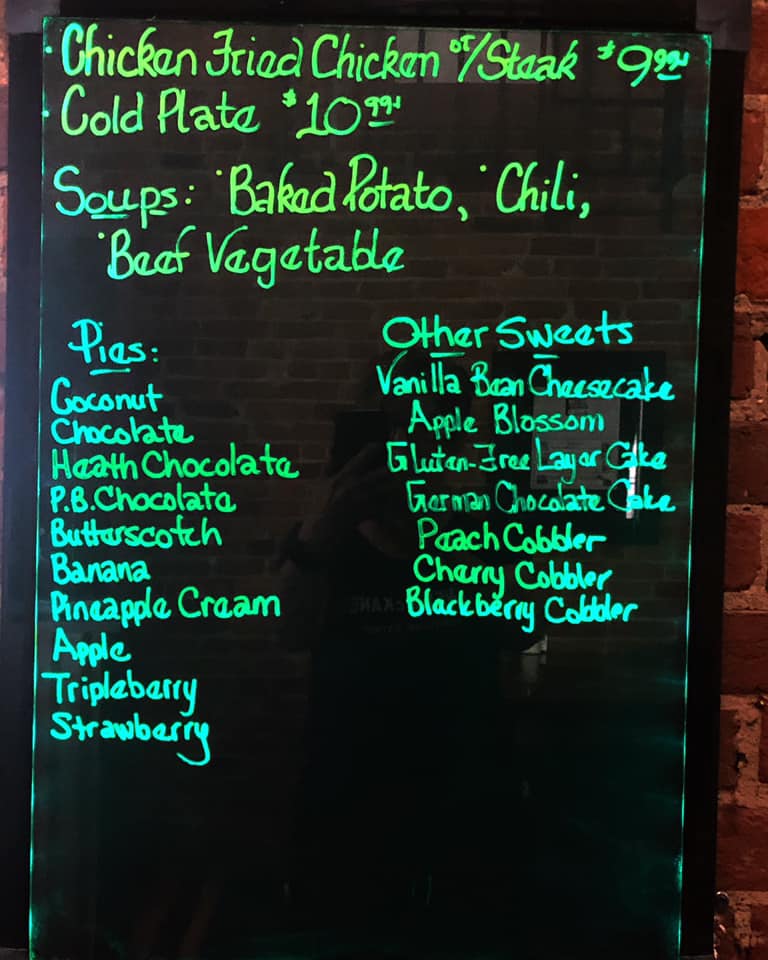 · Chicken Fried Chicken or/Steak $9.99
· Cold Plate $10.99
Soups: ·Baked Potato, ·Chili,
·Beef Vegetable
Pies:
Coconut
Chocolate
Heath Chocolate
P.B. Chocolate
Butterscotch
Banana
Pineapple Cream
Apple
Tripleberry
Strawberry
Other Sweets
Vanilla Bean Cheesecake
Apple Blossom
Gluten-Free Layer Cake
German Chocolate Cake
Peach Cobbler
Cherry Cobbler
Blackberry Cobbler